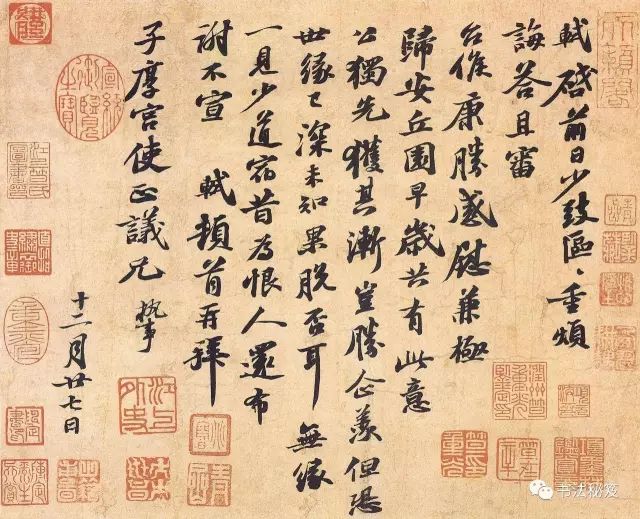 軾啓前日少致區﹑重煩
誨荅且審
台候康勝感慰兼極
歸安丘園早歲共有此意
公獨先獲其漸豈勝企羨但恐
世緣已深未知果脱否耳 無緣
一見少道宿昔為恨人還布
謝不宣 軾頓首再拜
子厚宮使正議兄 執事
十二月廿七日
书法秘笈